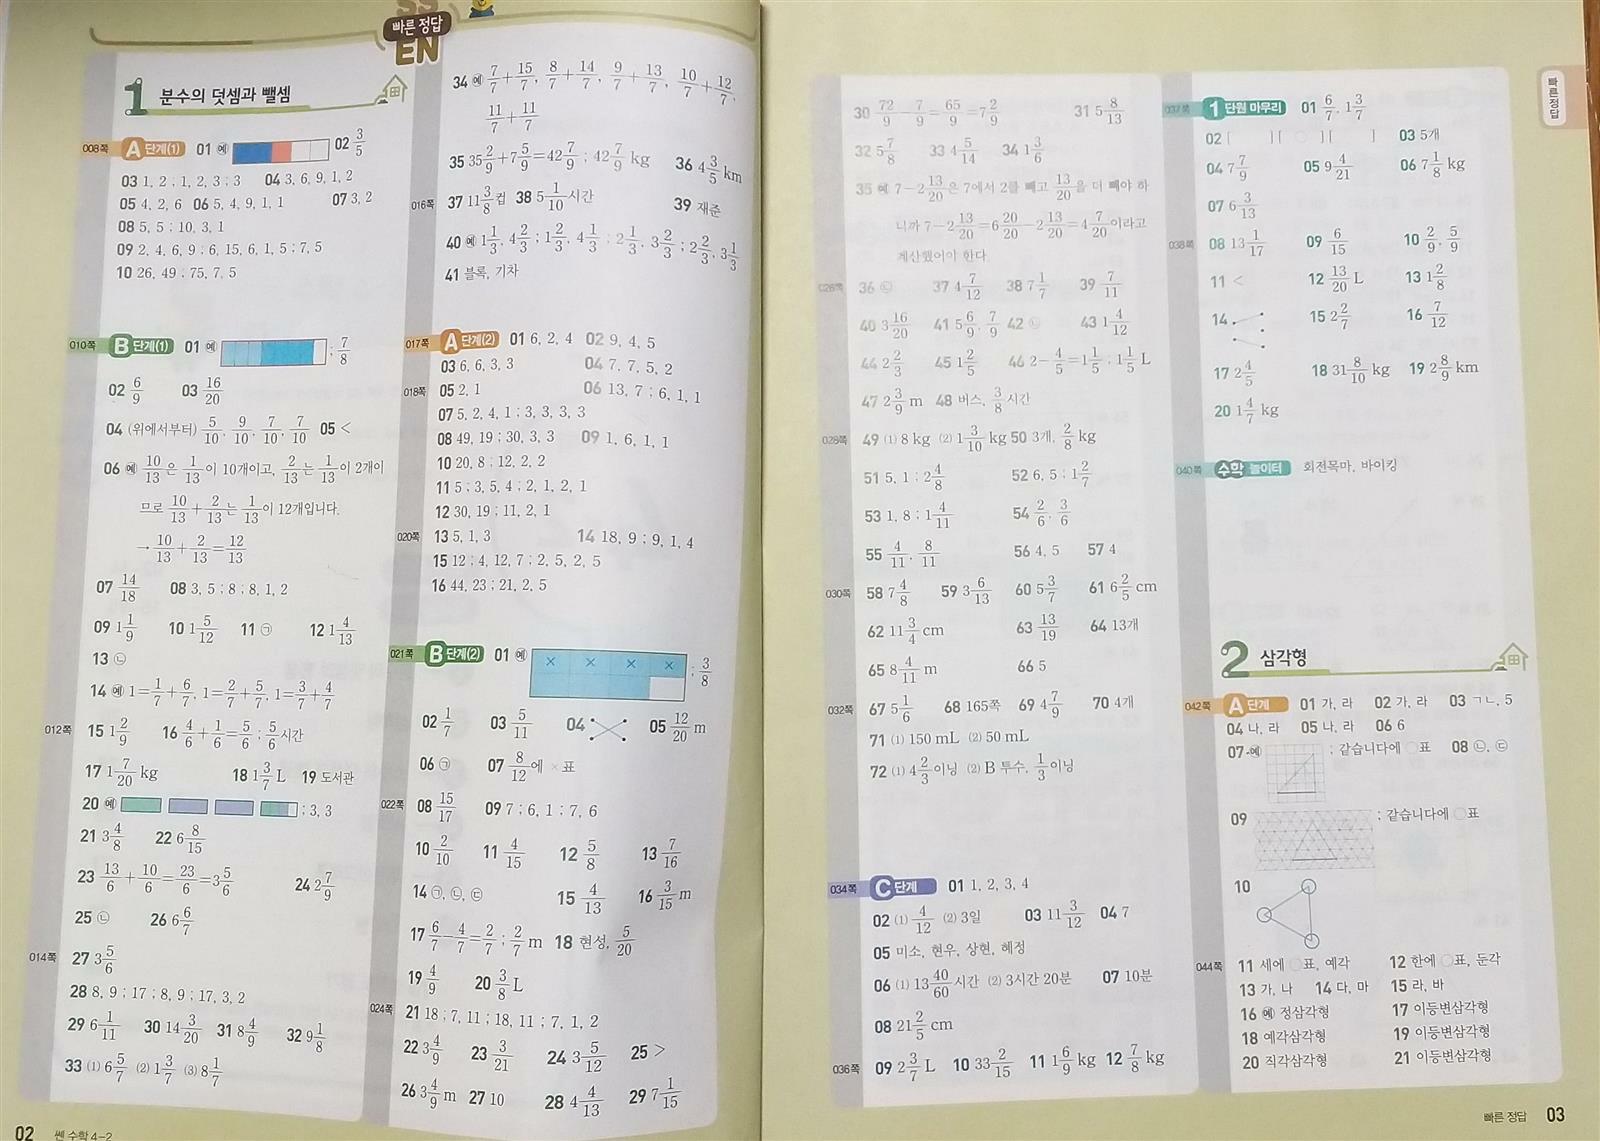 빠른 정답
EN
1 분수의 덧셈과 뺄셈
008쪽 A 단계(1) 01 예 02 3/5
03 1, 2 ; 1, 2, 3 ; 3 04 3, 6, 9, 1, 2
05 4, 2, 6 06 5, 4, 9, 1, 1 07 3, 2
08 5, 5 ; 10, 3, 1
09 2, 4, 6, 9 ; 6, 15, 6, 1, 5 ; 7, 5
10 26, 49 ; 75, 7, 5
010쪽 B 단계(1) 01 예 ; 7/8
02 6/9 03 16/20
04 (위에서부터) 5/10, 9/10, 7/10, 7/10 05 <
06 예 10/13은 1/13이 10개이고, 2/13는 1/13이 2개이
므로 10/13+2/13는 1/13이 12개입니다.
→ 10/13+2/13=12/13
07 14/18 08 3, 5 ; 8 ; 8, 1, 2
09 1 1/9 10 1 5/12 11 ㉠ 12 1 4/13
13 ㉡
14 예 1=1/7+6/7, 1=2/7+5/7, 1=3/7+4/7
012쪽 15 1 2/9 16 4/6+1/6=5/6 ; 5/6시간
17 1 7/20 kg 18 1 3/7 L 19 도서관
20 예 ; 3, 3
21 3 4/8 22 6 8/15
23 13/6+10/6=23/6=3 5/6 24 2 7/9
25 ㉡ 26 6 6/7
014쪽 27 3 5/6
28 8, 9 ; 17 ; 8, 9 ; 17, 3, 2
29 6 1/11 30 14 3/20 31 8 4/9 32 9 1/8
33 (1) 6 5/7 (2) 1 3/7 (3) 8 1/7
34 예 7/7+15/7, 8/7+14/7, 9/7+13/7, 10/7+12/7,
11/7+11/7
35 35 2/9+7 5/9=42 7/9 ; 42 7/9 kg 36 4 3/5 km
016쪽 37 11 3/8컵 38 5 1/10시간 39 재준
40 예 1 1/3, 4 2/3 ; 1 2/3, 4 1/3 ; 2 1/3, 3 2/3 ; 2 2/3, 3 1/3
41 블록, 기차
017쪽 A 단계(2) 01 6, 2, 4 02 9, 4, 5
03 6, 6, 3, 3 04 7, 7, 5, 2
018쪽 05 2, 1 06 13, 7 ; 6, 1, 1
07 5, 2, 4, 1 ; 3, 3, 3, 3
08 49, 19 ; 30, 3, 3 09 1, 6, 1, 1
10 20, 8 ; 12, 2, 2
11 5 ; 3, 5, 4 ; 2, 1, 2, 1
12 30, 19 ; 11, 2, 1
020쪽 13 5, 1, 3 14 18, 9 ; 9, 1, 4
15 12 ; 4, 12, 7 ; 2, 5, 2, 5
16 44, 23 ; 21, 2, 5
021쪽 B 단계(2) 01 예 ; 3/8
02 1/7 03 5/11 04 05 12/20 m
06 ㉠ 07 8/12에 ×표
022쪽 08 15/17 09 7 ; 6, 1 ; 7, 6
10 2/10 11 4/15 12 5/8 13 7/16
14 ㉠, ㉡, ㉢ 15 4/13 16 3/15 m
17 6/7-4/7=2/7 ; 2/7 m 18 현성, 5/20
19 4/9 20 3/8 L
024쪽 21 18 ; 7, 11 ; 18, 11 ; 7, 1, 2
22 3 4/9 23 3/21 24 3 5/12 25 >
26 3 4/9 m 27 10 28 4 4/13 29 7 1/15
02 쎈 수학 4-2
30 72/9-7/9=65/9=7 2/9 31 5 8/13
32 5 7/8 33 4 5/14 34 1 3/6
35 예 7-2 13/20은 7에서 2를 빼고 13/20을 더 빼야 하
니까 7-2 13/20=6 20/20-2 13/20=4 7/20이라고
계산했어야 한다.
026쪽 36 ㉡ 37 4 7/12 38 7 1/7 39 7/11
40 3 16/20 41 5 6/9, 7/9 42 ㉡ 43 1 4/12
44 2 2/3 45 1 2/5 46 2-4/5=1 1/5 ; 1 1/5 L
47 2 3/9 m 48 버스, 3/8시간
028쪽 49 (1) 8 kg (2) 1 3/10 kg 50 3개, 2/8 kg
51 5, 1 ; 2 4/8 52 6, 5 ; 1 2/7
53 1, 8 ; 1 4/11 54 2/6, 3/6
55 4/11, 8/11 56 4, 5 57 4
030쪽 58 7 4/8 59 3 6/13 60 5 3/7 61 6 2/5 cm
62 11 3/4 cm 63 13/19 64 13개
65 8 4/11 m 66 5
032쪽 67 5 1/6 68 165쪽 69 4 7/9 70 4개
71 (1) 150 mL (2) 50 mL
72 (1) 4 2/3이닝 (2) B 투수, 1/3이닝
034쪽 C 단계 01 1, 2, 3, 4
02 (1) 4/12 (2) 3일 03 11 3/12 04 7
05 미소, 현우, 상현, 혜정
06 (1) 13 40/60시간 (2) 3시간 20분 07 10분
08 21 2/5 cm
036쪽 09 2 3/7 L 10 33 2/15 11 1 6/9 kg 12 7/8 kg
037쪽 1 단원 마무리 01 6/7, 1 3/7
02 [ ] [ ○ ] [ ] 03 5개
04 7 7/9 05 9 4/21 06 7 1/8 kg
07 6 3/13
038쪽 08 13 1/17 09 6/15 10 2/9, 5/9
11 < 12 13/20 L 13 1 2/8
14 15 2 2/7 16 7/12
17 2 4/5 18 31 8/10 kg 19 2 8/9 km
20 1 4/7 kg
040쪽 수학 놀이터 회전목마, 바이킹
2 삼각형
042쪽 A 단계 01 가, 라 02 가, 라 03 ㄱㄴ, 5
04 나, 라 05 나, 라 06 6
07 예 ; 같습니다에 ○표 08 ㉡, ㉢
09 ; 같습니다에 ○표
10
044쪽 11 세에 ○표, 예각 12 한에 ○표, 둔각
13 가, 나 14 다, 마 15 라, 바
16 예 정삼각형 17 이등변삼각형
18 예각삼각형 19 이등변삼각형
20 직각삼각형 21 이등변삼각형
빠른정답
빠른 정답 03